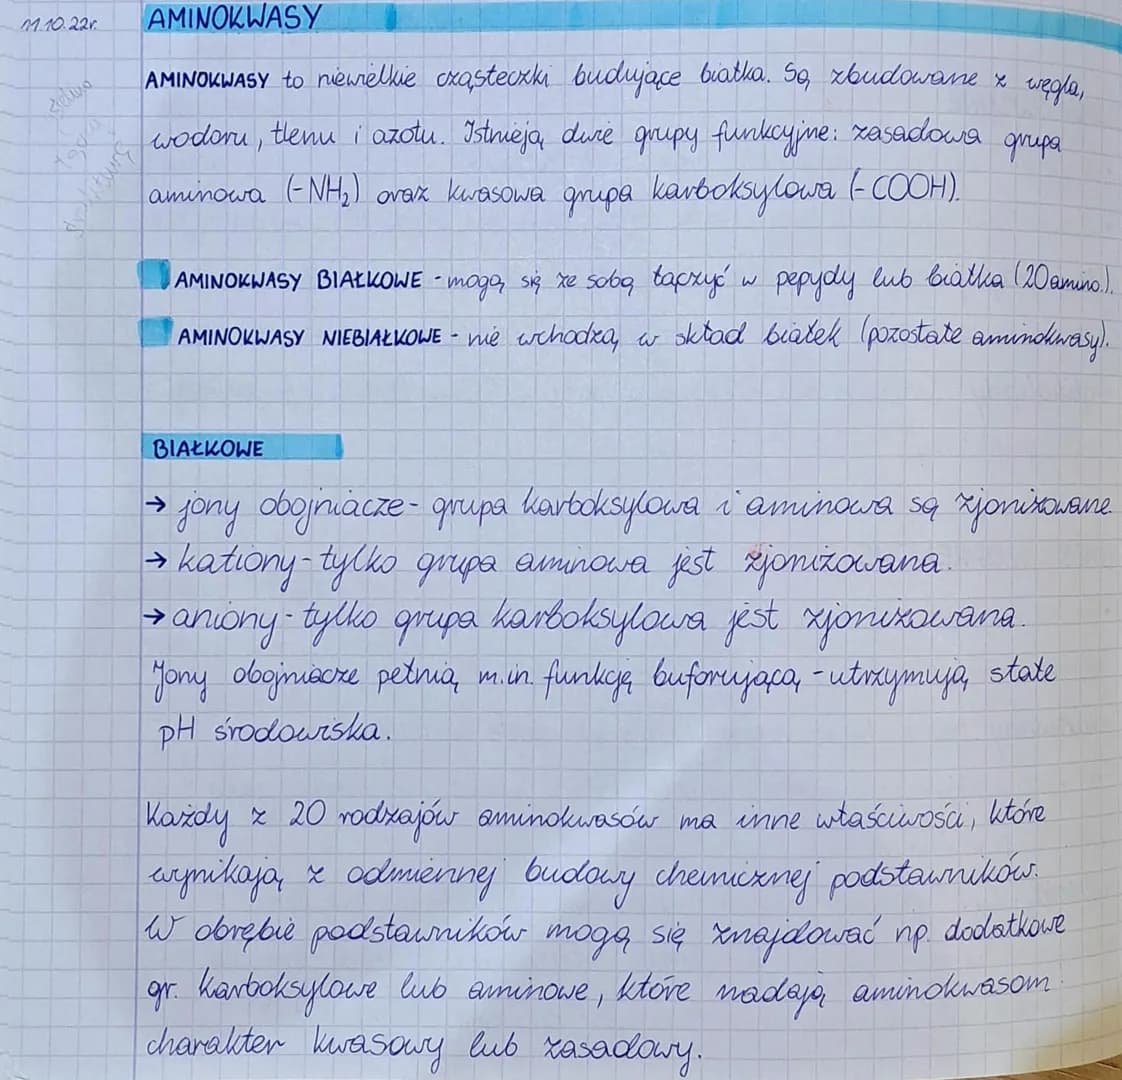 11.10.22r.
AMINOKWASY
AMINOKWASY to niewielkie cząsteczki budujące białka. Są zbudowane z węgla,
wodoru, tlenu i azotu. Istnieją dwie grupy funkcyjne: zasadowa grupa
aminowa (-NH₂) oraz kwasowa grupa karboksylowa (-COOH).
AMINOKWASY BIAŁKOWE - mogą się ze sobą łączyć w pepydy lub białka (20 amino.).
AMINOKWASY NIEBIAŁKOWE - nie wchodzą w skład białek (pozostałe aminokwasy).
BIAŁKOWE
→ jony obojniacze - grupa karboksylowa i aminowa są zjonizowane.
→ kationy - tylko grupa aminowa jest zjonizowana.
→ aniony - tylko grupa karboksylowa jest zjonizowana.
Jony obojniacze pełnią m.in. funkcję buforującą - utrzymują stałe
pH środowiska.
Każdy z 20 rodzajów aminokwasów ma inne właściwości, które
wynikają z odmiennej budowy chemicznej podstawników.
W obrębie podstawników mogą się znajdować np. dodatkowe
gr. karboksylowe lub aminowe, które nadają aminokwasom
charakter kwasowy lub zasadowy.